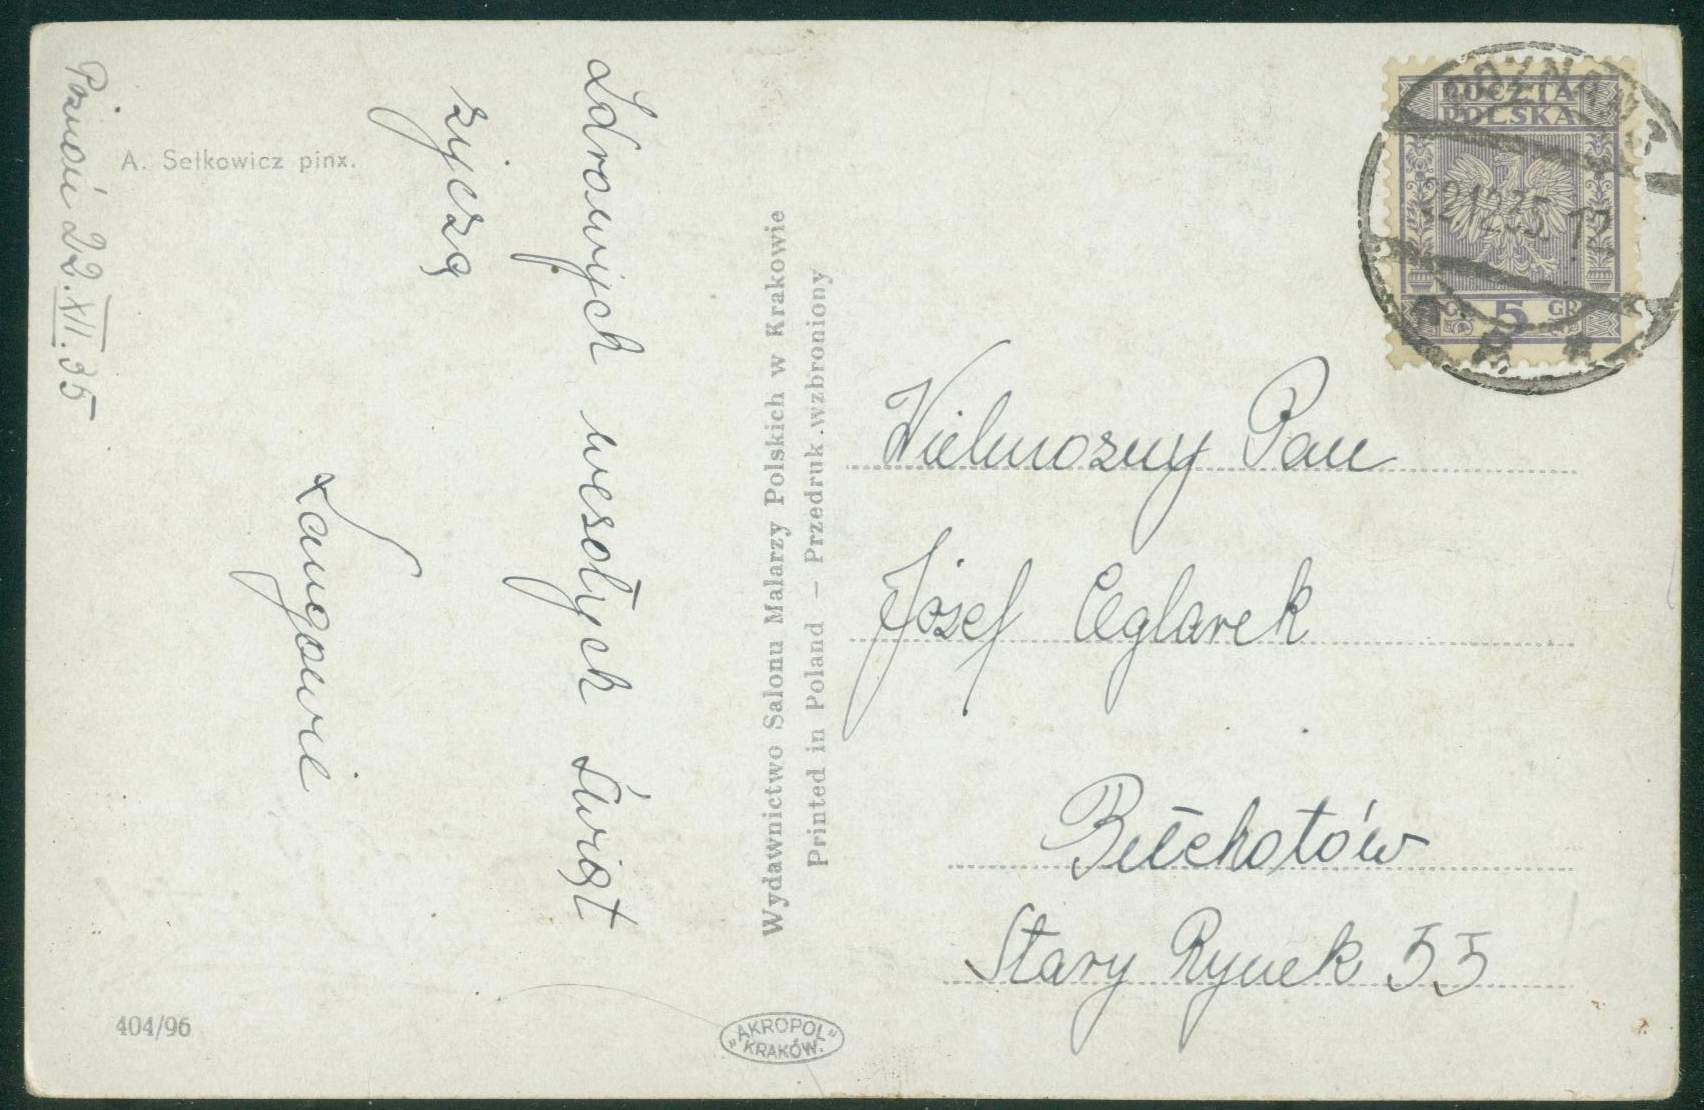 Poznań 22.XII.35
A. Sełkowicz pinx.
Zdrowych wesołych Świąt
życzą
Langowie
404/96
Wydawnictwo Salonu Malarzy Polskich w Krakowie
Printed in Poland – Przedruk wzbroniony
"AKROPOL"
KRAKÓW.
POCZTA
POLSKA
GR 5 GR
22.12.35. 12
Wielmożny Pan
Józef Ceglarek
Bełchatów
Stary Rynek 55